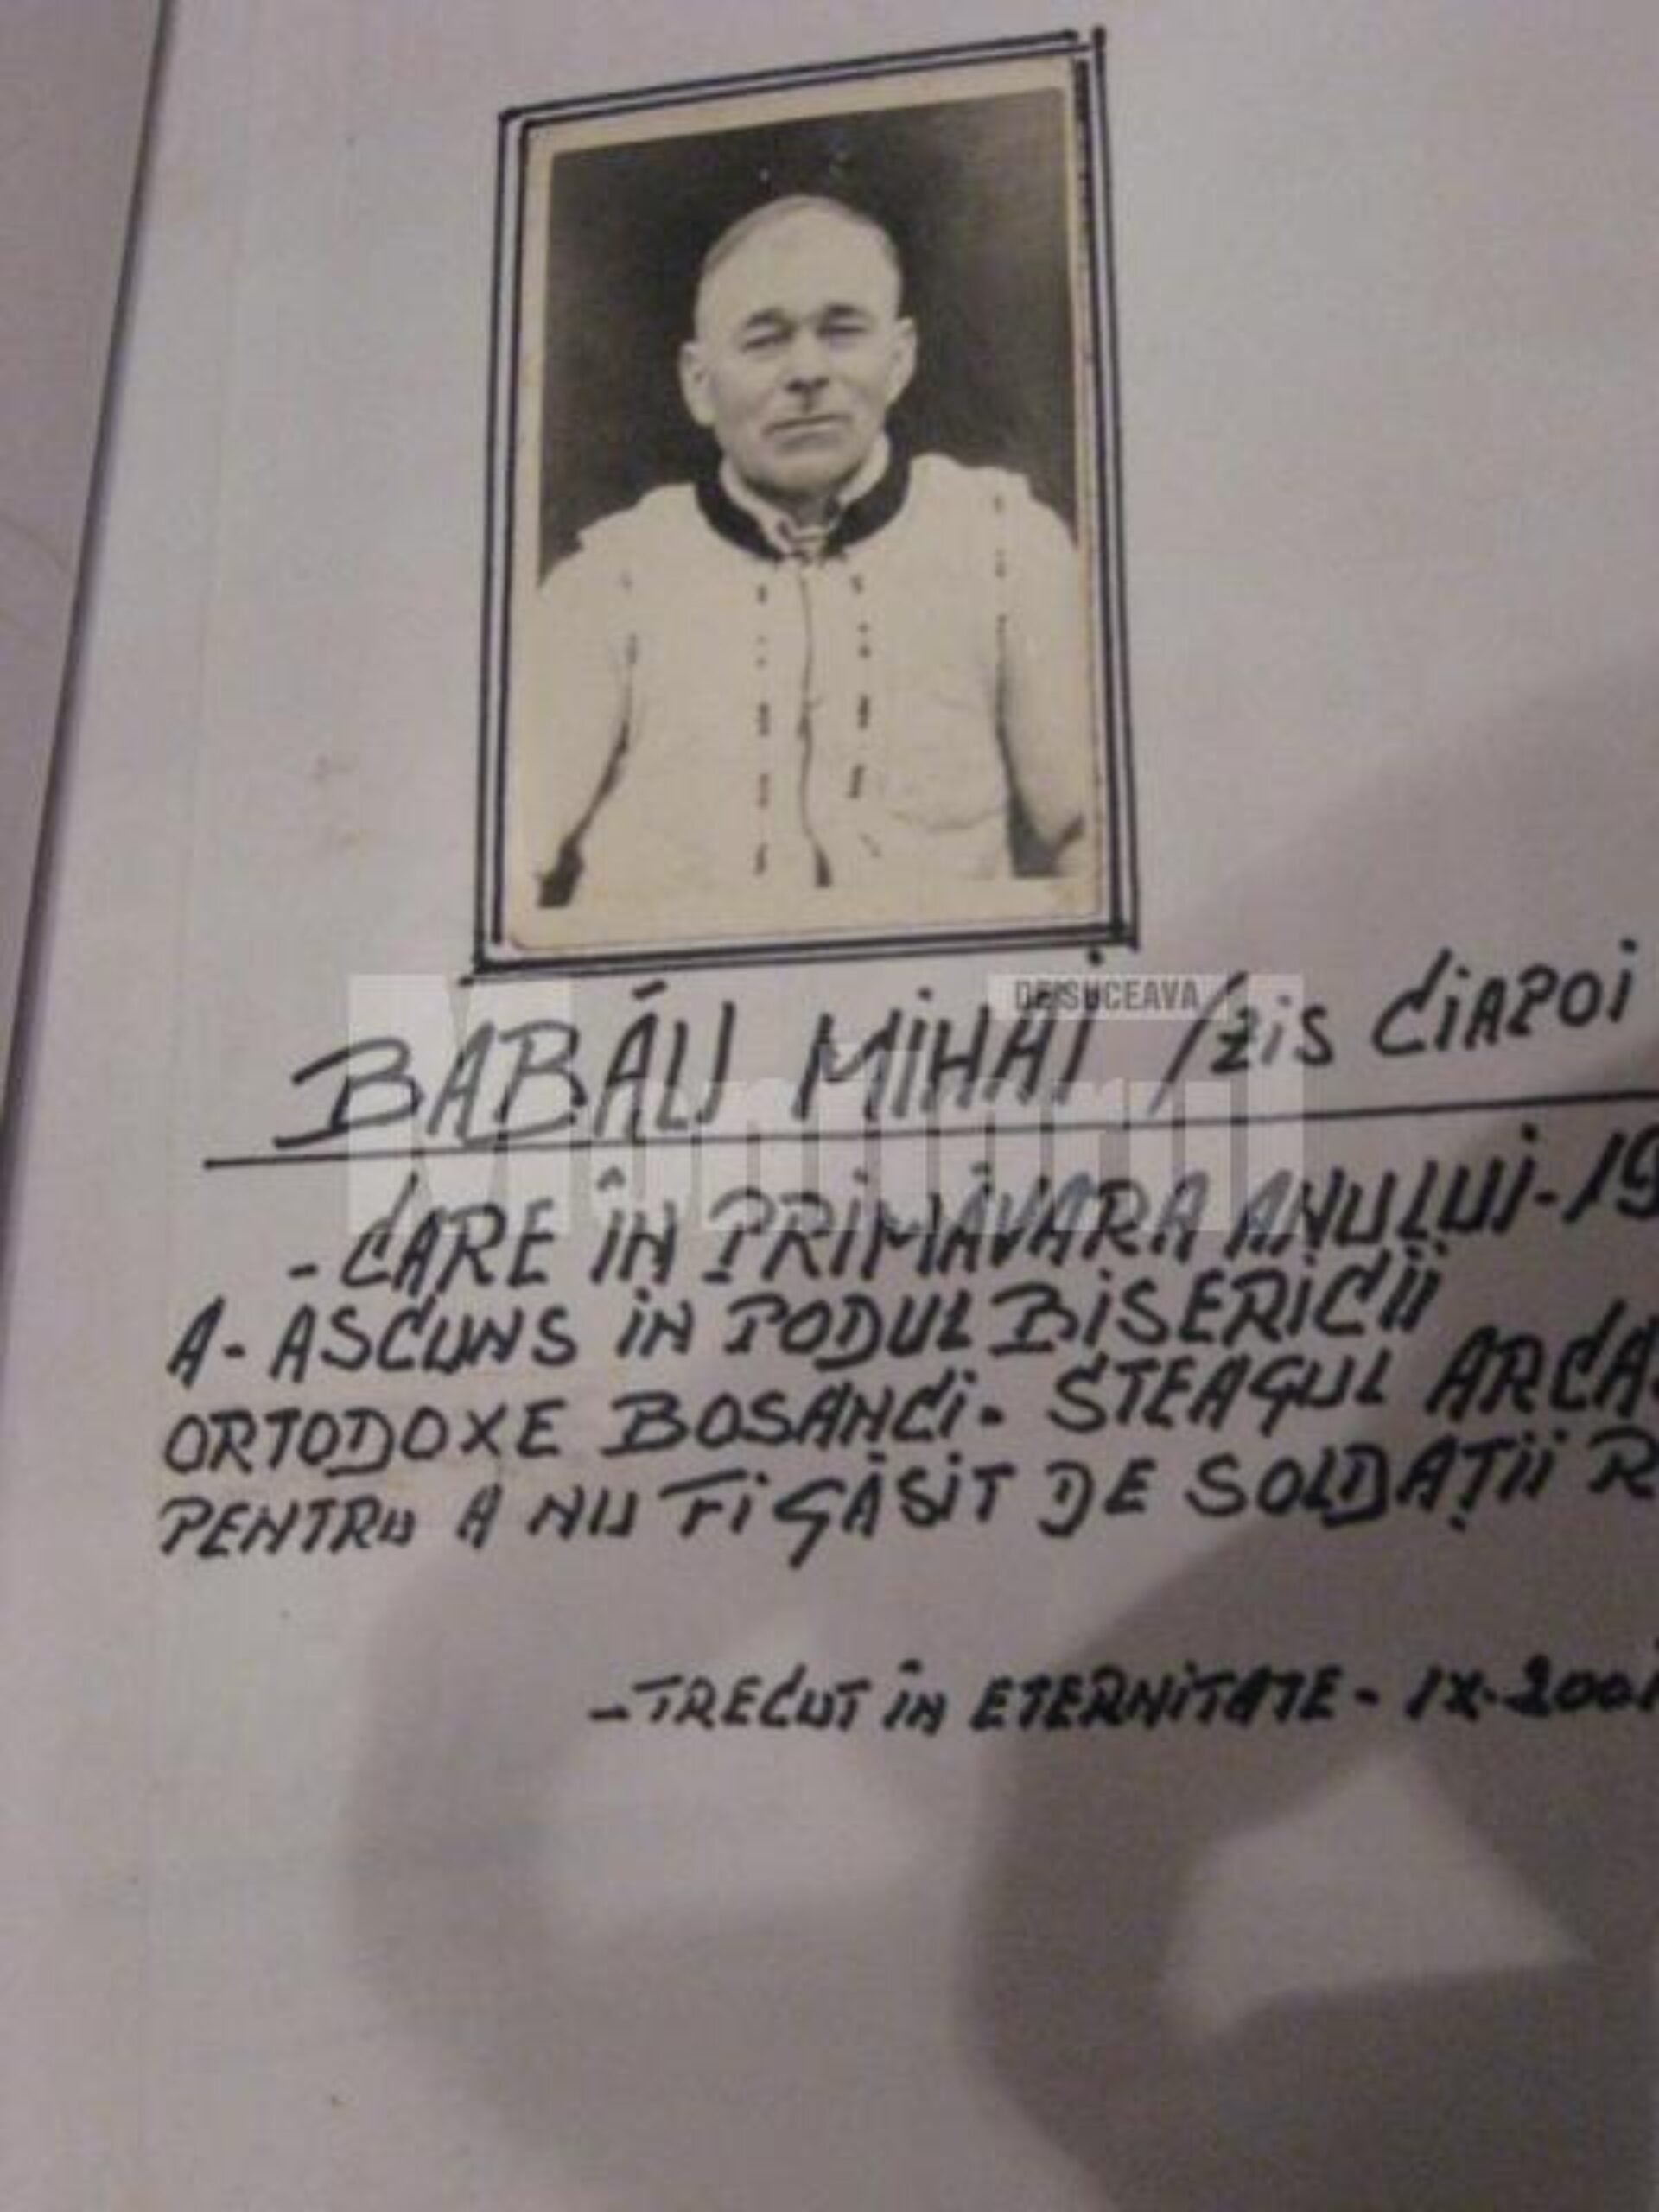 BABĂU MIHAI /zis CIAPOI
- CARE ÎN PRIMĂVARA ANULUI - 19
A - ASCUNS ÎN PODUL BISERICII
ORTODOXE BOSANCI - STEAGUL ARCA
PENTRU A NU FI GĂSIT DE SOLDAȚII R
- TRECUT ÎN ETERNITATE - IX - 2001
Monitorul
DE SUCEAVA